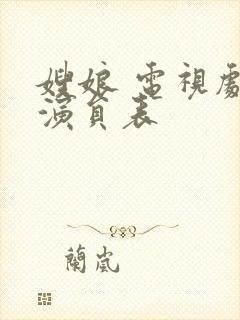 嫂娘 電視劇
演員表
蘭嵐